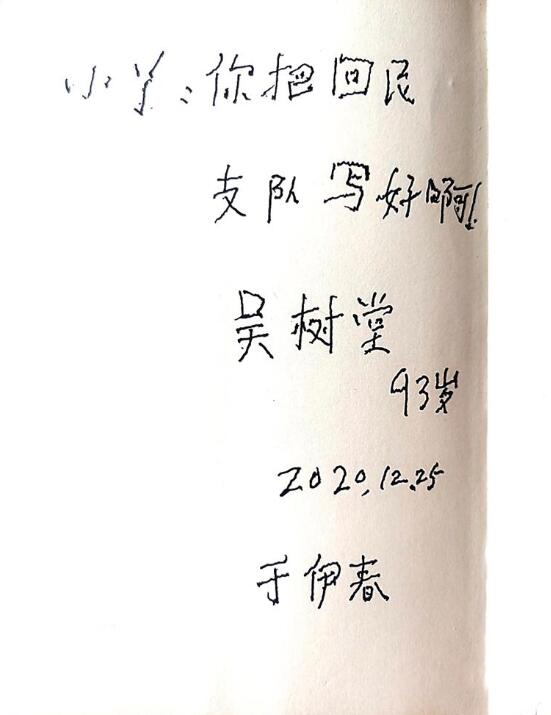 小丫:你把回民
支队写好啊!
吴树堂
93岁
2020.12.25
于伊春